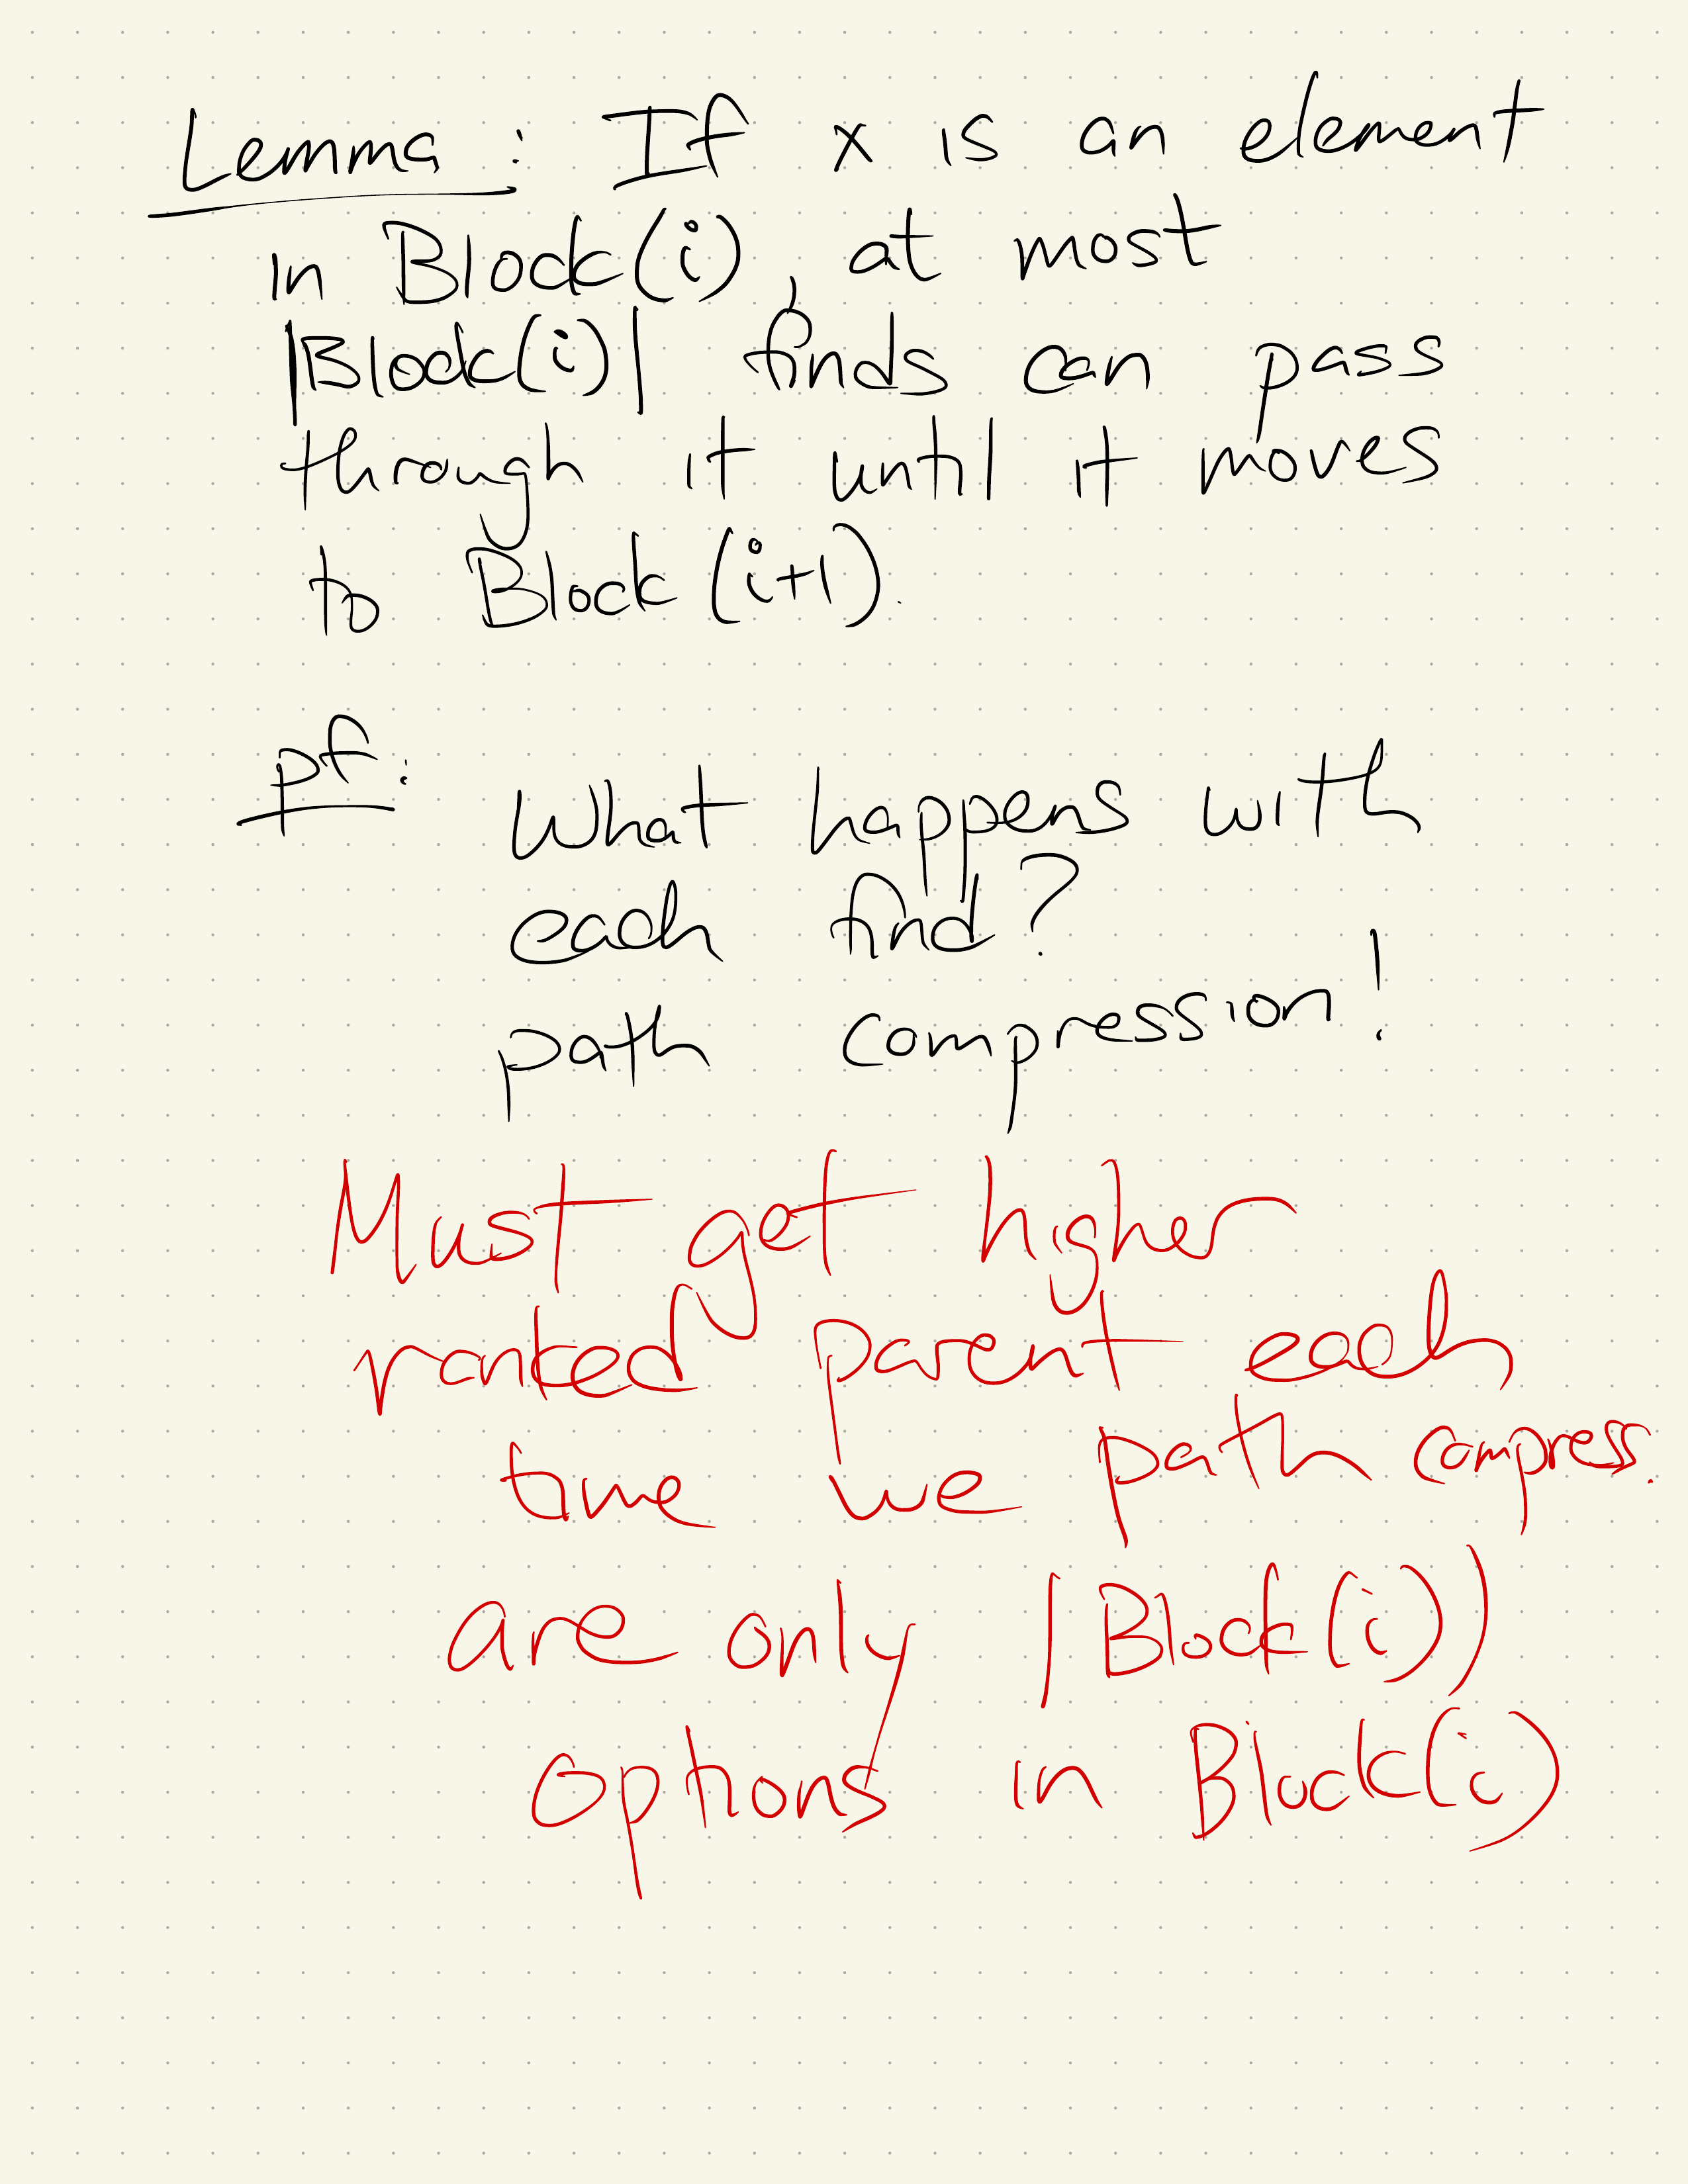 Lemma: If x is an element
in Block(i), at most
|Block(i)| finds can pass
through it until it moves
to Block (i+1).
pf:
What happens with
each find?
path compression!
Must get higher
ranked parent each
time we path compress.
are only |Block(i)|
options in Block(i)